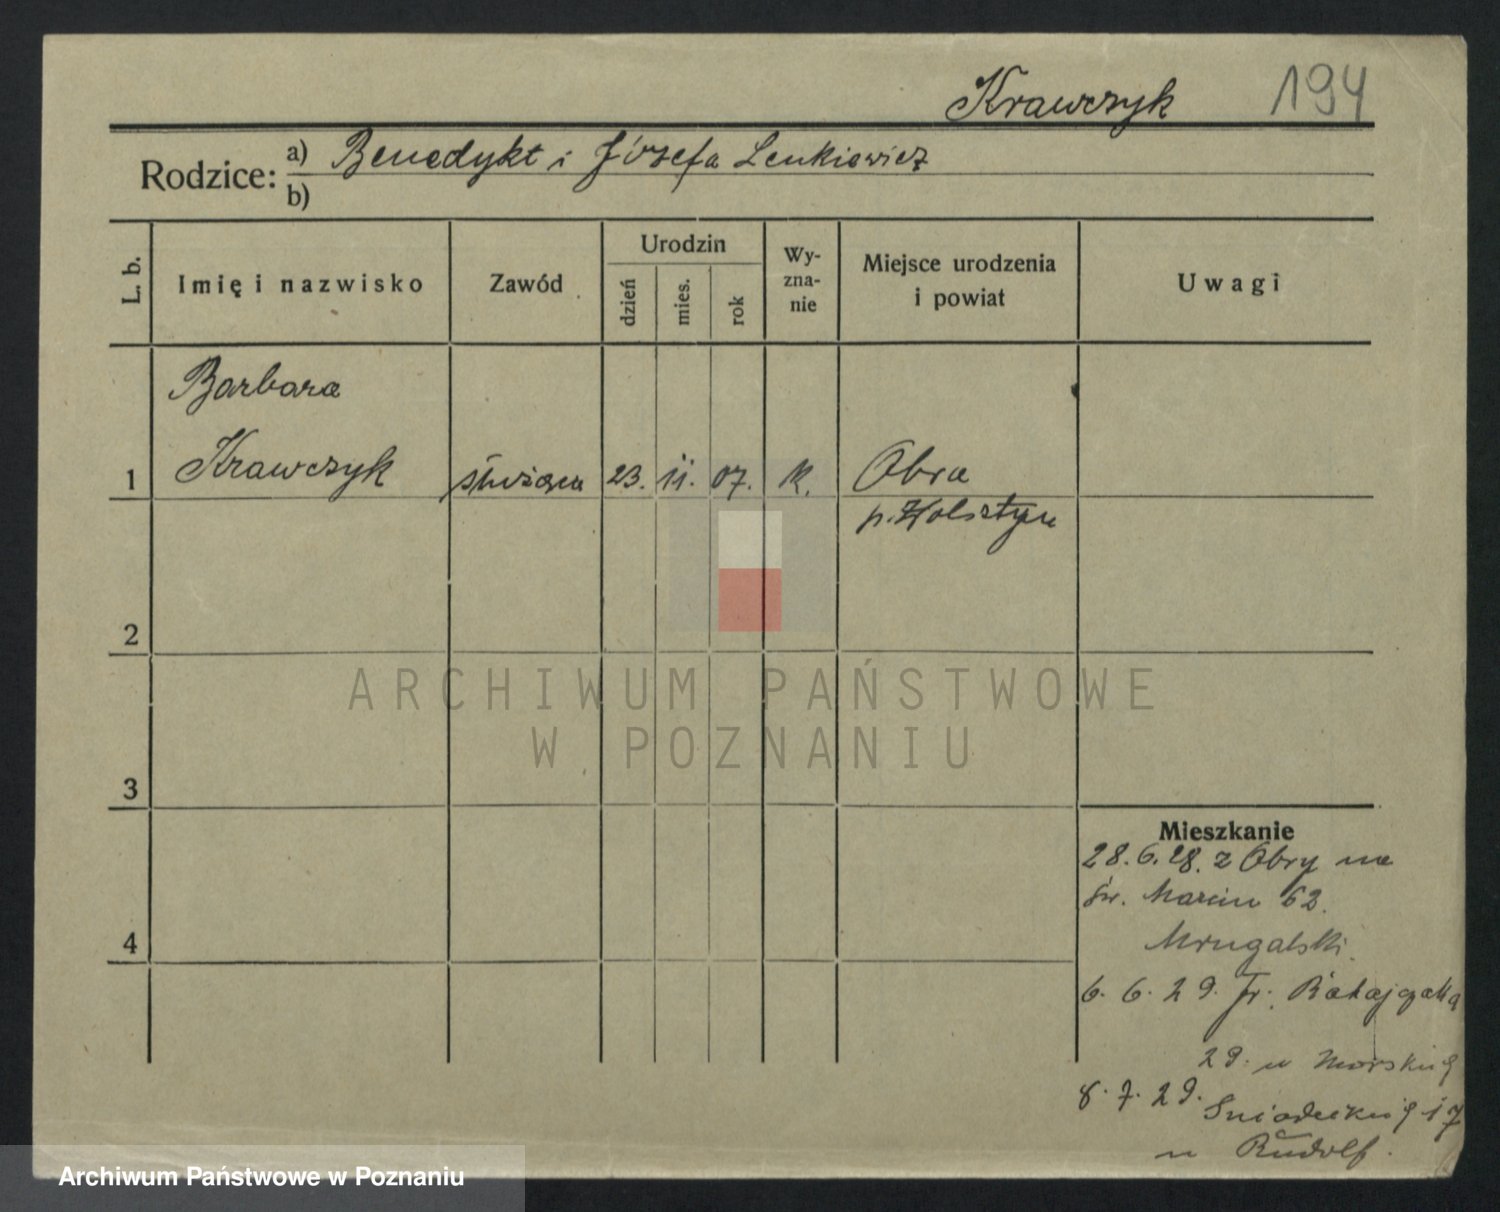 Krawczyk 194
Rodzice: a) Benedykt i Józefa Lenkiewicz
b)
L. b. Imię i nazwisko Zawód Urodzin dzień mies. rok Wy-zna-nie Miejsce urodzenia i powiat Uwagi
Barbara
1 Krawczyk służąca 23. 11. 07. k. Obra
p. Wolsztyn
2
ARCHIWUM PAŃSTWOWE
W POZNANIU
3
Mieszkanie
28.6.28. z Obry na
św. Marcin 62.
Mrugalski.
4
6. 6. 29. Fr. Ratajczaka
29. u
8. 7. 29. Śniadeckich 17
u Rudolf.
Archiwum Państwowe w Poznaniu